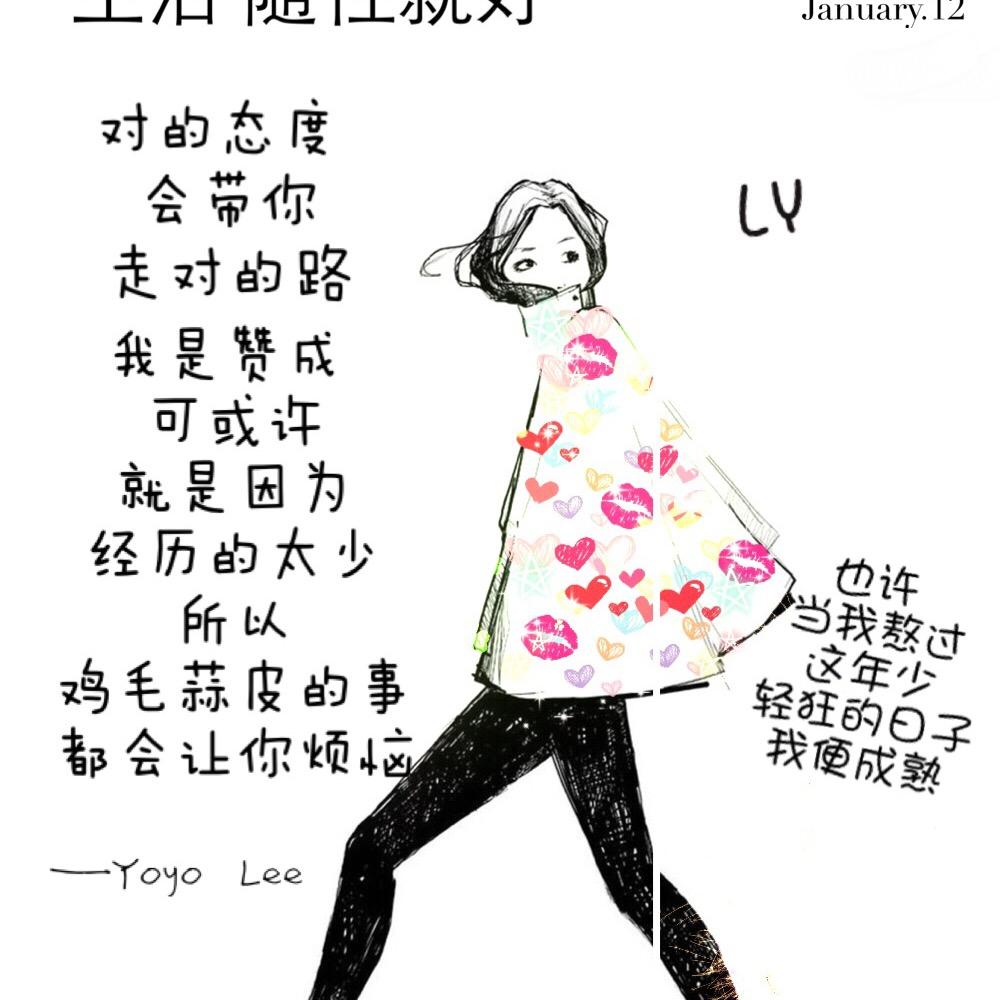 生活 随性就好
January.12
LY
对的态度
会带你
走对的路
我是赞成
可或许
就是因为
经历的太少
所以
鸡毛蒜皮的事
都会让你烦恼
—Yoyo Lee
也许
当我熬过
这年少
轻狂的日子
我便成熟